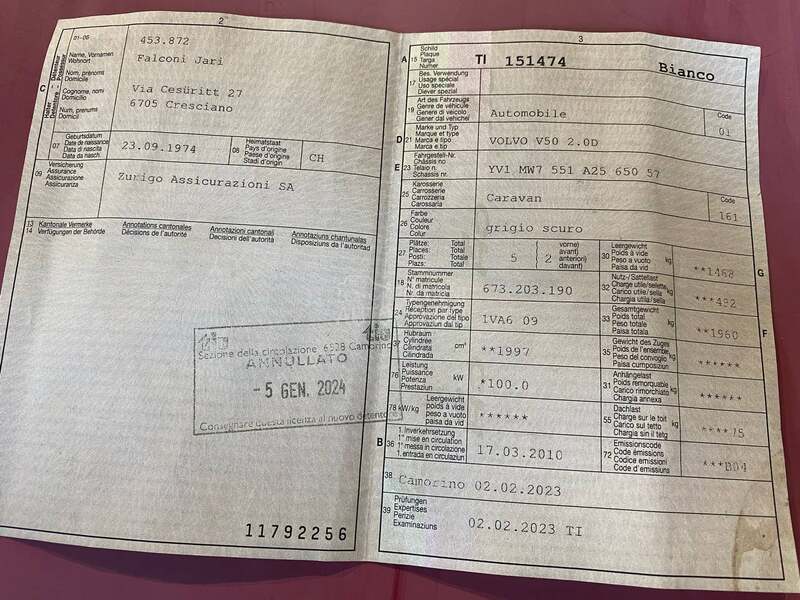 2
01-06
C
Halter
Détenteur
Detentore
Possessur
Name, Vornamen
Wohnort
Nom, prénoms
Domicile
Cognome, nomi
Domicilio
Num, prenums
Domicil
453.872
Falconi Jari
Via Cesüritt 27
6705 Cresciano
07
Geburtsdatum
Date de naissance
Data di nascita
Data da nasch.
23.09.1974
08
Heimatstaat
Pays d'origine
Paese d'origine
Stadi d'origin
CH
09
Versicherung
Assurance
Assicurazione
Assicuranza
Zurigo Assicurazioni SA
13
14
Kantonale Vermerke
Verfügungen der Behörde
Annotations cantonales
Décisions de l'autorité
Annotazioni cantonali
Decisioni dell'autorità
Annotaziuns chantunalas
Disposiziuns da l'autoritad
Sezione della circolazione 6528 Camorino
ANNULLATO
- 5 GEN. 2024
Consegnare questa licenza al nuovo detentore
11792256
3
A
15
Schild
Plaque
Targa
Numer
TI 151474
Bianco
17
Bes. Verwendung
Usage spécial
Uso speciale
Diever spezial
19
Art des Fahrzeugs
Genre de véhicule
Genere di veicolo
Gener dal vehichel
Automobile
Code
01
D
21
Marke und Typ
Marque et type
Marca e tipo
Marca e tip
VOLVO V50 2.0D
E
23
Fahrgestell-Nr.
Châssis no
Telaio n.
Schassis nr.
YV1 MW7 551 A25 650 57
25
Karosserie
Carrosserie
Carrozzeria
Carossaria
Caravan
Code
161
26
Farbe
Couleur
Colore
Colur
grigio scuro
27
Plätze: Total
Places: Total
Posti: Totale
Plazs: Total
5
( 2
vorne)
avant)
anteriori)
davant)
30
Leergewicht
Poids à vide
Peso a vuoto
Paisa da vid
kg
**1468
G
18
Stammnummer
N° matricule
N. di matricola
Nr. da matricla
673.203.190
32
Nutz-/Sattellast
Charge utile/sellette
Carico utile/sella
Chargia utila/sella
kg
***492
24
Typengenehmigung
Réception par type
Approvazione del tipo
Approvaziun dal tip
1VA6 09
33
Gesamtgewicht
Poids total
Peso totale
Paisa totala
kg
**1960
F
37
Hubraum
Cylindrée
Cilindrata
Cilindrada
cm³
**1997
35
Gewicht des Zuges
Poids de l'ensemble
Peso del convoglio
Paisa cumposiziun
kg
******
76
Leistung
Puissance
Potenza
Prestaziun
kW
*100.0
31
Anhängelast
Poids remorquable
Carico rimorchiato
Chargia annexa
kg
******
78 kW/kg
Leergewicht
poids à vide
peso a vuoto
paisa da vid
******
55
Dachlast
Charge sur le toit
Carico sul tetto
Chargia sin il tetg
kg
****75
B
36
1. Inverkehrsetzung
1re mise en circulation
1a messa in circolazione
1. entrada en circulaziun
17.03.2010
72
Emissionscode
Code émissions
Codice emissioni
Code d'emissiuns
***B04
38
Camorino 02.02.2023
39
Prüfungen
Expertises
Perizie
Examinaziuns
02.02.2023 TI